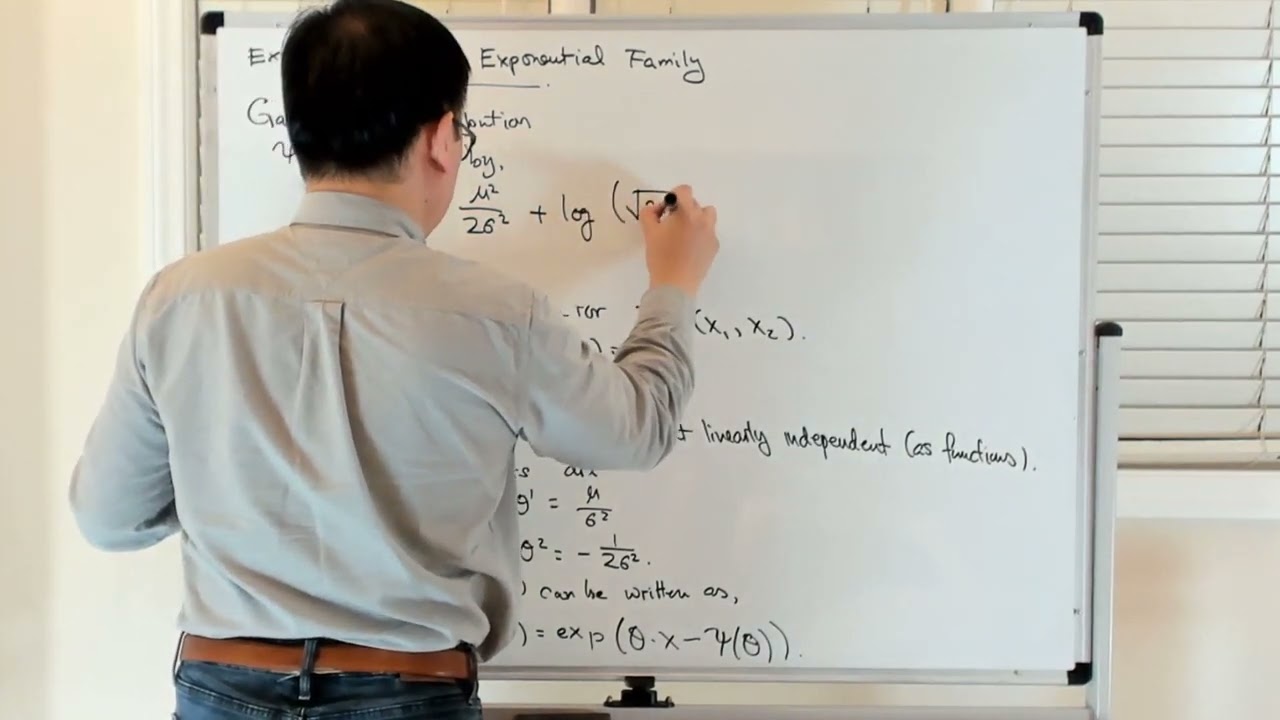 Exponential Family
by.
μ²/2σ² + log (√
(x₁, x₂).
linearly independent (as functions).
θ¹ = μ/σ²
θ² = - 1/2σ².
) can be written as,
) = exp(θ·x − ψ(θ)).